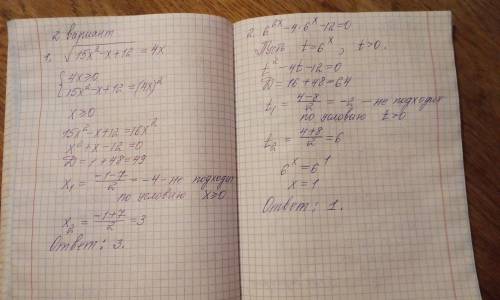 2 вариант
1. √15x²-x+12 = 4x
{4x≥0
{15x²-x+12=(4x)²
x≥0
15x²-x+12=16x²
x²+x-12=0
D=1+48=49
x₁ = (-1-7)/2 = -4 - не подходит
по условию x≥0
x₂ = (-1+7)/2 = 3
Ответ: 3.
2. 6^2x - 4·6^x - 12=0
Пусть t=6^x, t>0.
t²-4t-12=0
D=16+48=64
t₁ = (4-8)/2 = -2 - не подходит
по условию t>0
t₂ = (4+8)/2 = 6
6^x=6^1
x=1
Ответ: 1.